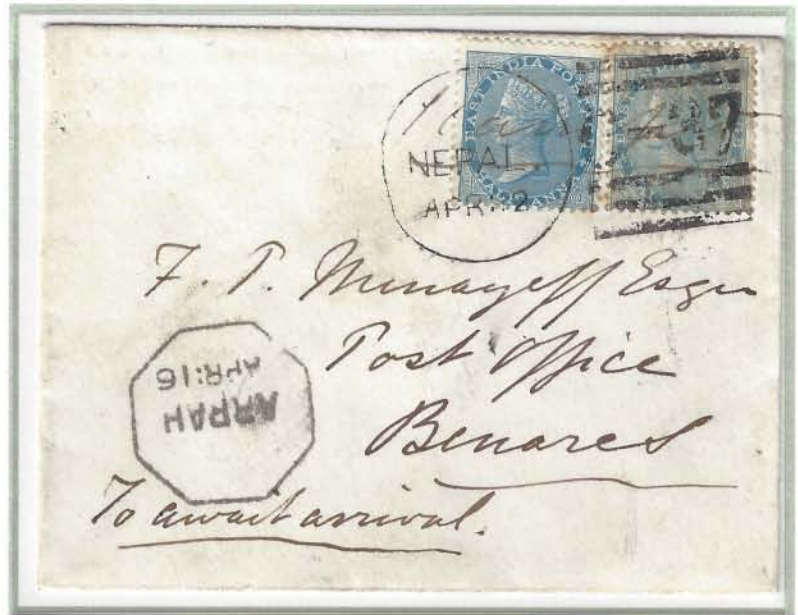 EAST INDIA POSTAGE
HALF ANNA
NEPAL
APR:12
F. P. Minayeff Esqr
Post Office
Benares
ARRAH
APR:16
To await arrival.